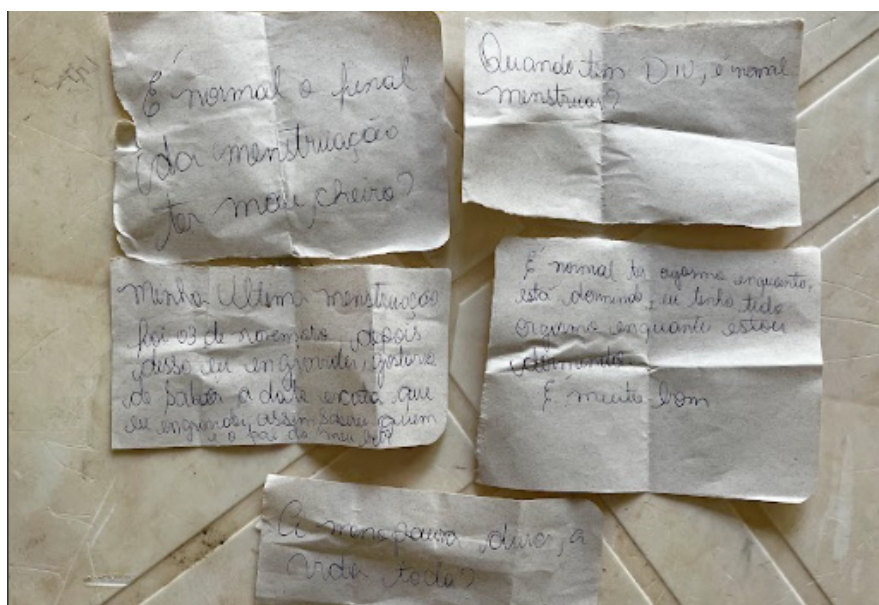 É normal o final
da menstruação
ter mau cheiro?
Quando tem DIU, é normal
menstruar?
Minha Ultima menstruação
foi 03 de novembro, depois
disso eu engravidei, gostaria
de saber a data exata que
eu engravidei, assim saberei quem
é o pai do meu bebê
É normal ter orgasmo enquanto
está dormindo, eu tenho tido
orgasmo enquanto estou
dormindo
É muito bom
A menopausa dura a
vida toda?